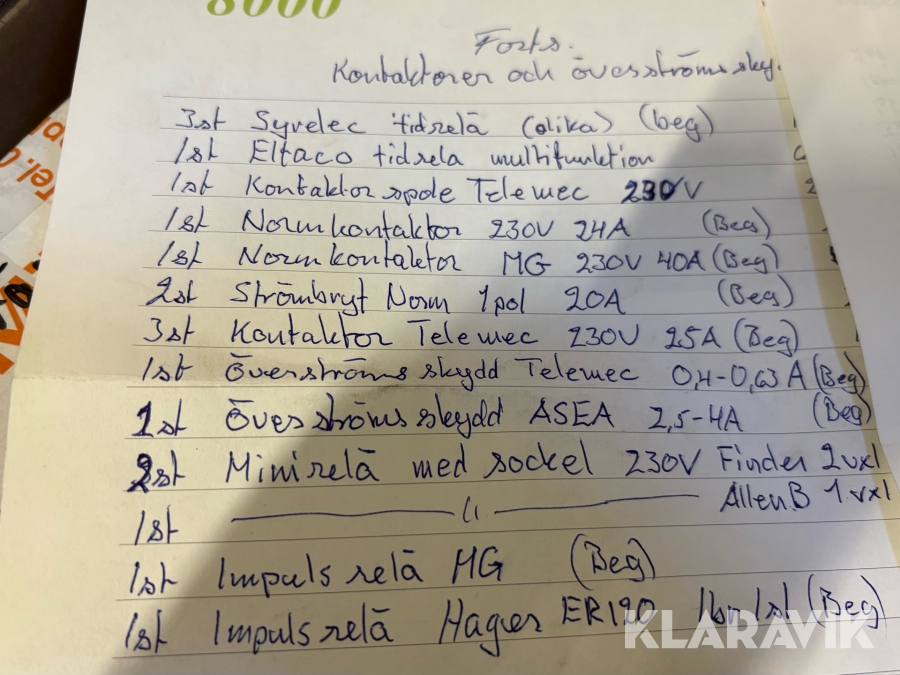 8000
Forts.
Kontaktorer och överströms sky.
3st Syrelec tidrelä (olika) (beg)
1st Eltaco tidrela multifunktion
1st Kontaktor spole Telemec 230V
1st Normkontaktor 230V 24A (Beg)
1st Normkontaktor MG 230V 40A (Beg)
2st Strömbryt Norm 1pol 20A (Beg)
3st Kontaktor Telemec 230V 25A (Beg)
1st Överströms skydd Telemec 0,4-0,63 A (Beg)
1st Överströms skydd ASEA 2,5-4A (Beg)
2st Minirelä med sockel 230V Finder 2vxl
1st —— 〃 —— Allen B 1 vxl
1st Impuls relä MG (Beg)
1st Impuls relä Hager ER120 1br/st (Beg)
KLARAVIK
Tel.